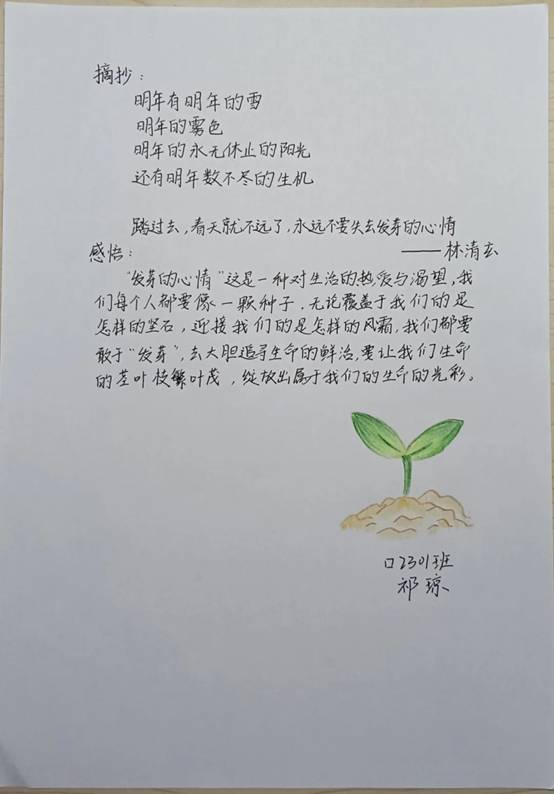 摘抄：
明年有明年的雪
明年的雾色
明年的永无休止的阳光
还有明年数不尽的生机
踏过去，春天就不远了，永远不要失去发芽的心情
——林清玄
感悟：
"发芽的心情"这是一种对生活的热爱与渴望，我
们每个人都要像一颗种子，无论覆盖于我们的是
怎样的坚石，迎接我们的是怎样的风霜，我们都要
敢于"发芽"，去大胆追寻生命的鲜活，要让我们生命
的茎叶枝繁叶茂，绽放出属于我们的生命的光彩。
口2301班
祁琼